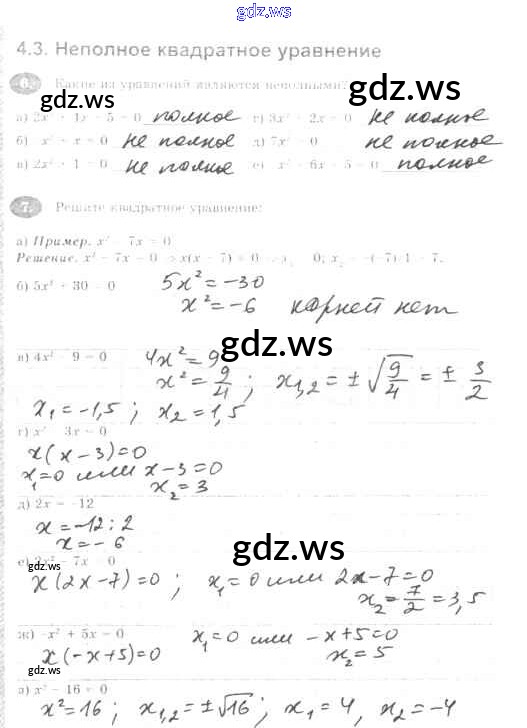 gdz.ws
4.3. Неполное квадратное уравнение
6. Какие из уравнений являются неполными?
gdz.ws
gdz.ws
а) 2x² + 4x + 5 = 0 полное г) 3x² + 2x = 0 не полное
б) x² + x = 0 не полное д) 7x² = 0 не полное
в) 2x² + 1 = 0 не полное е) x² + 6x + 5 = 0 полное
7. Решите квадратное уравнение:
а) Пример. x² - 7x = 0
Решение. x² - 7x = 0 x(x - 7) = 0 0; x₂ = -(-7) : 1 = 7.
б) 5x² + 30 = 0 5x² = -30
x² = -6 корней нет
gdz.ws
в) 4x² - 9 = 0 4x² = 9
x² = 9/4 ; x₁,₂ = ± √9/4 = ± 3/2
x₁ = -1,5 ; x₂ = 1,5
г) x² - 3x = 0
x(x - 3) = 0
x₁ = 0 или x - 3 = 0
x₂ = 3
д) 2x = -12
x = -12 : 2
x = -6
gdz.ws
е) 2x² - 7x = 0
x(2x - 7) = 0 ; x₁ = 0 или 2x - 7 = 0
x₂ = 7/2 = 3,5
ж) -x² + 5x = 0 x₁ = 0 или -x + 5 = 0
x(-x + 5) = 0 x₂ = 5
gdz.ws
з) x² - 16 = 0
x² = 16 ; x₁,₂ = ± √16 ; x₁ = 4, x₂ = -4
gdz.ws